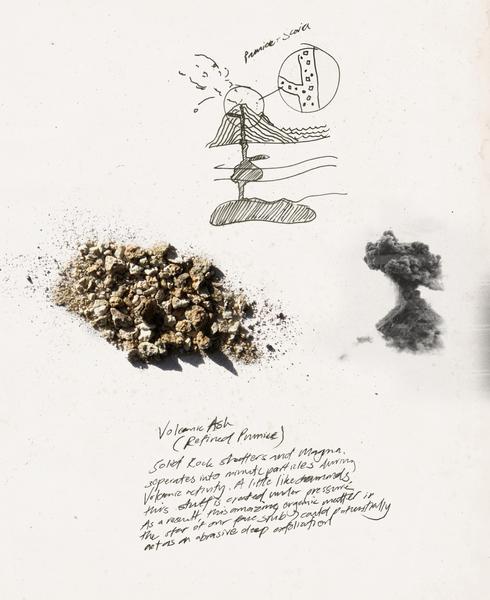 Pumice + Scoria
Volcanic Ash
(Refined Pumice)
Solid Rock shatters and Magma.
seperates into minute particles during
Volcanic activity. A little like diamonds,
this stuff is created under pressure
As a result, this amazing organic matter is
the star of our face scrub) could potentially
act as an abrasive deep exfoliation